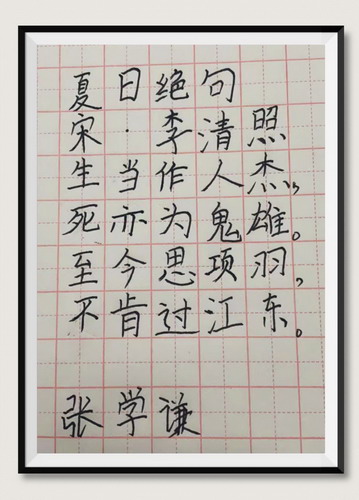 夏日绝句
宋·李清照
生当作人杰,
死亦为鬼雄。
至今思项羽,
不肯过江东。
张学谦